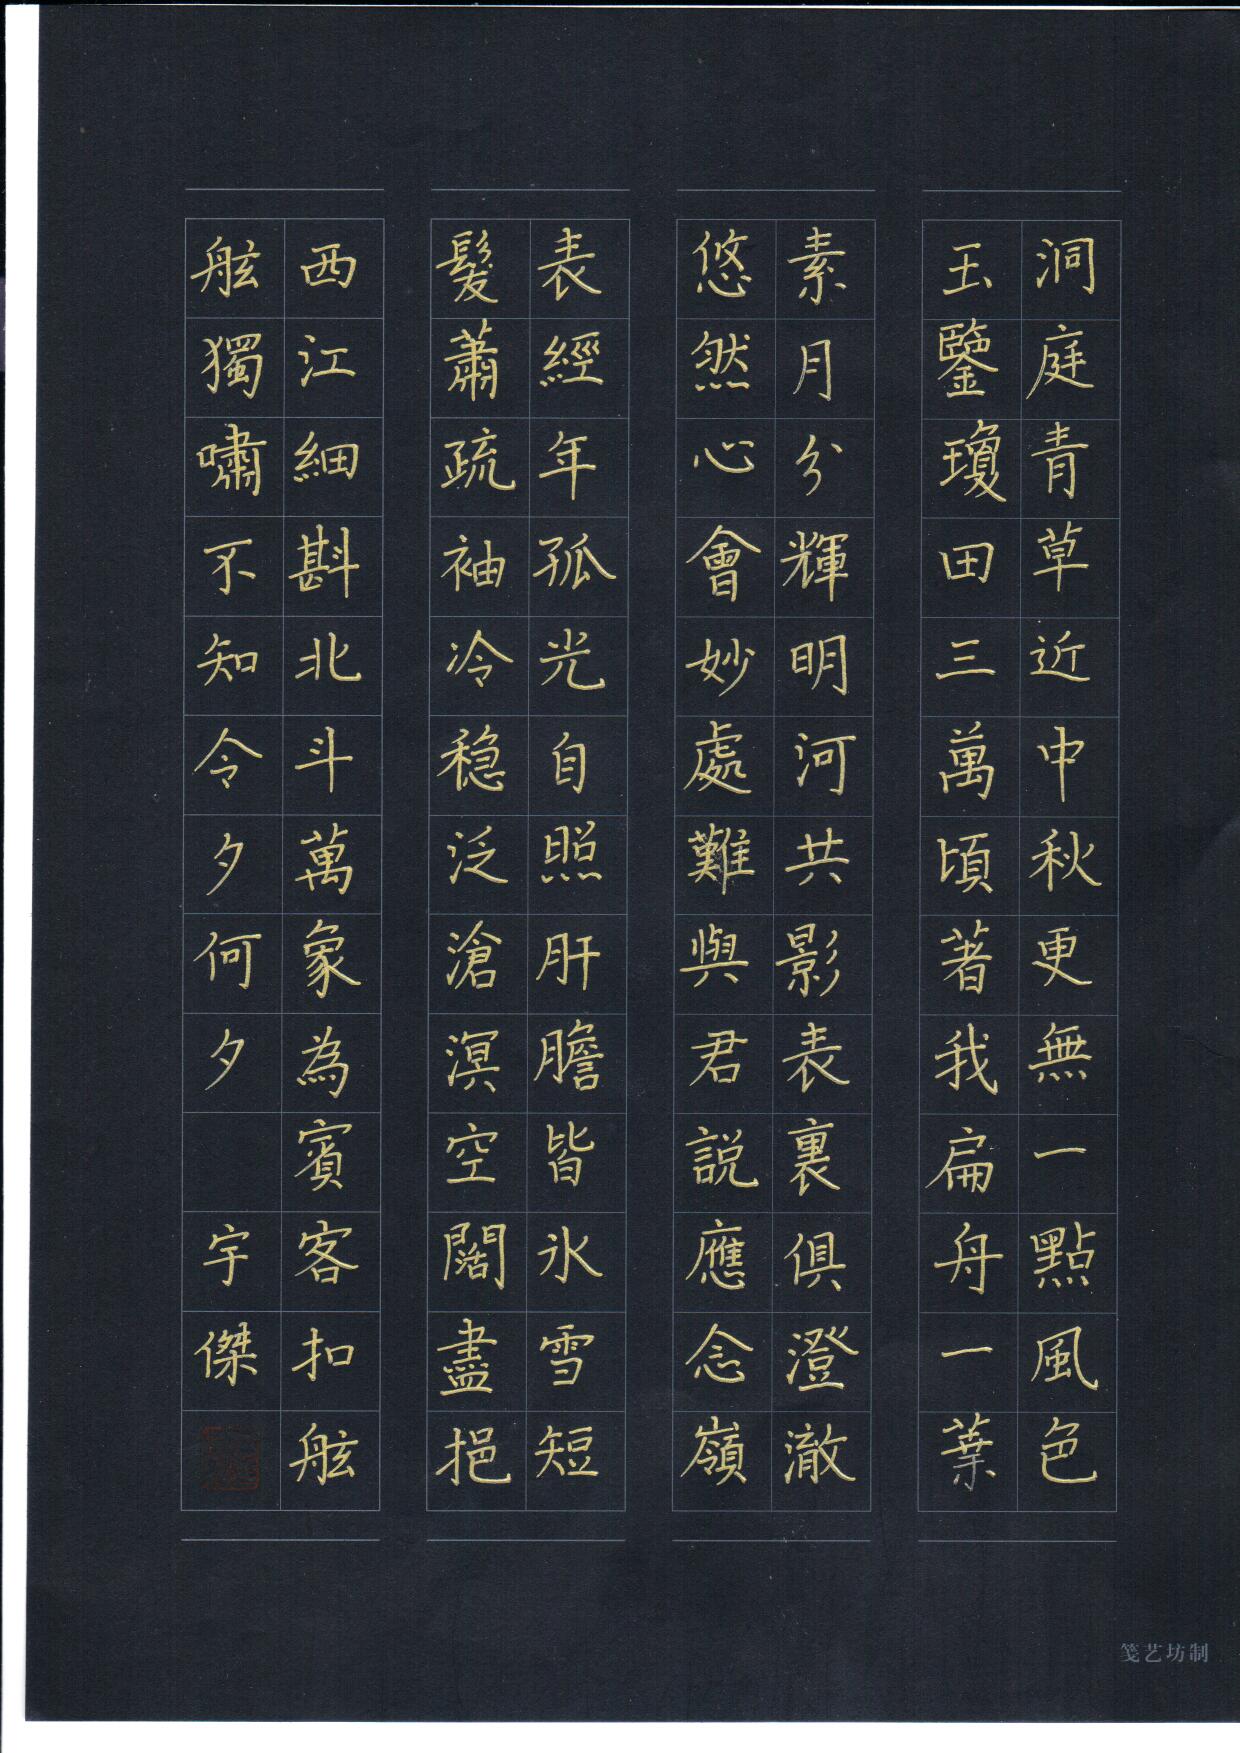 洞庭青草近中秋更無一點風色
玉鑒瓊田三萬頃著我扁舟一葉
素月分輝明河共影表裏俱澄澈
悠然心會妙處難與君説應念嶺
表經年孤光自照肝膽皆氷雪短
髮蕭疏袖冷稳泛滄溟空闊盡挹
西江細斟北斗萬象為賓客扣舷
舷獨嘯不知今夕何夕 宇傑
笺艺坊制